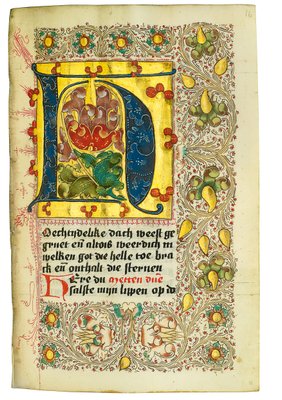 16
H
oechtidelike dach weest ge
gruet en̄ altois weerdich in
welken got die helle toe bra
en̄ onthalt die sternen
HEre du
salste mijn lippen op do